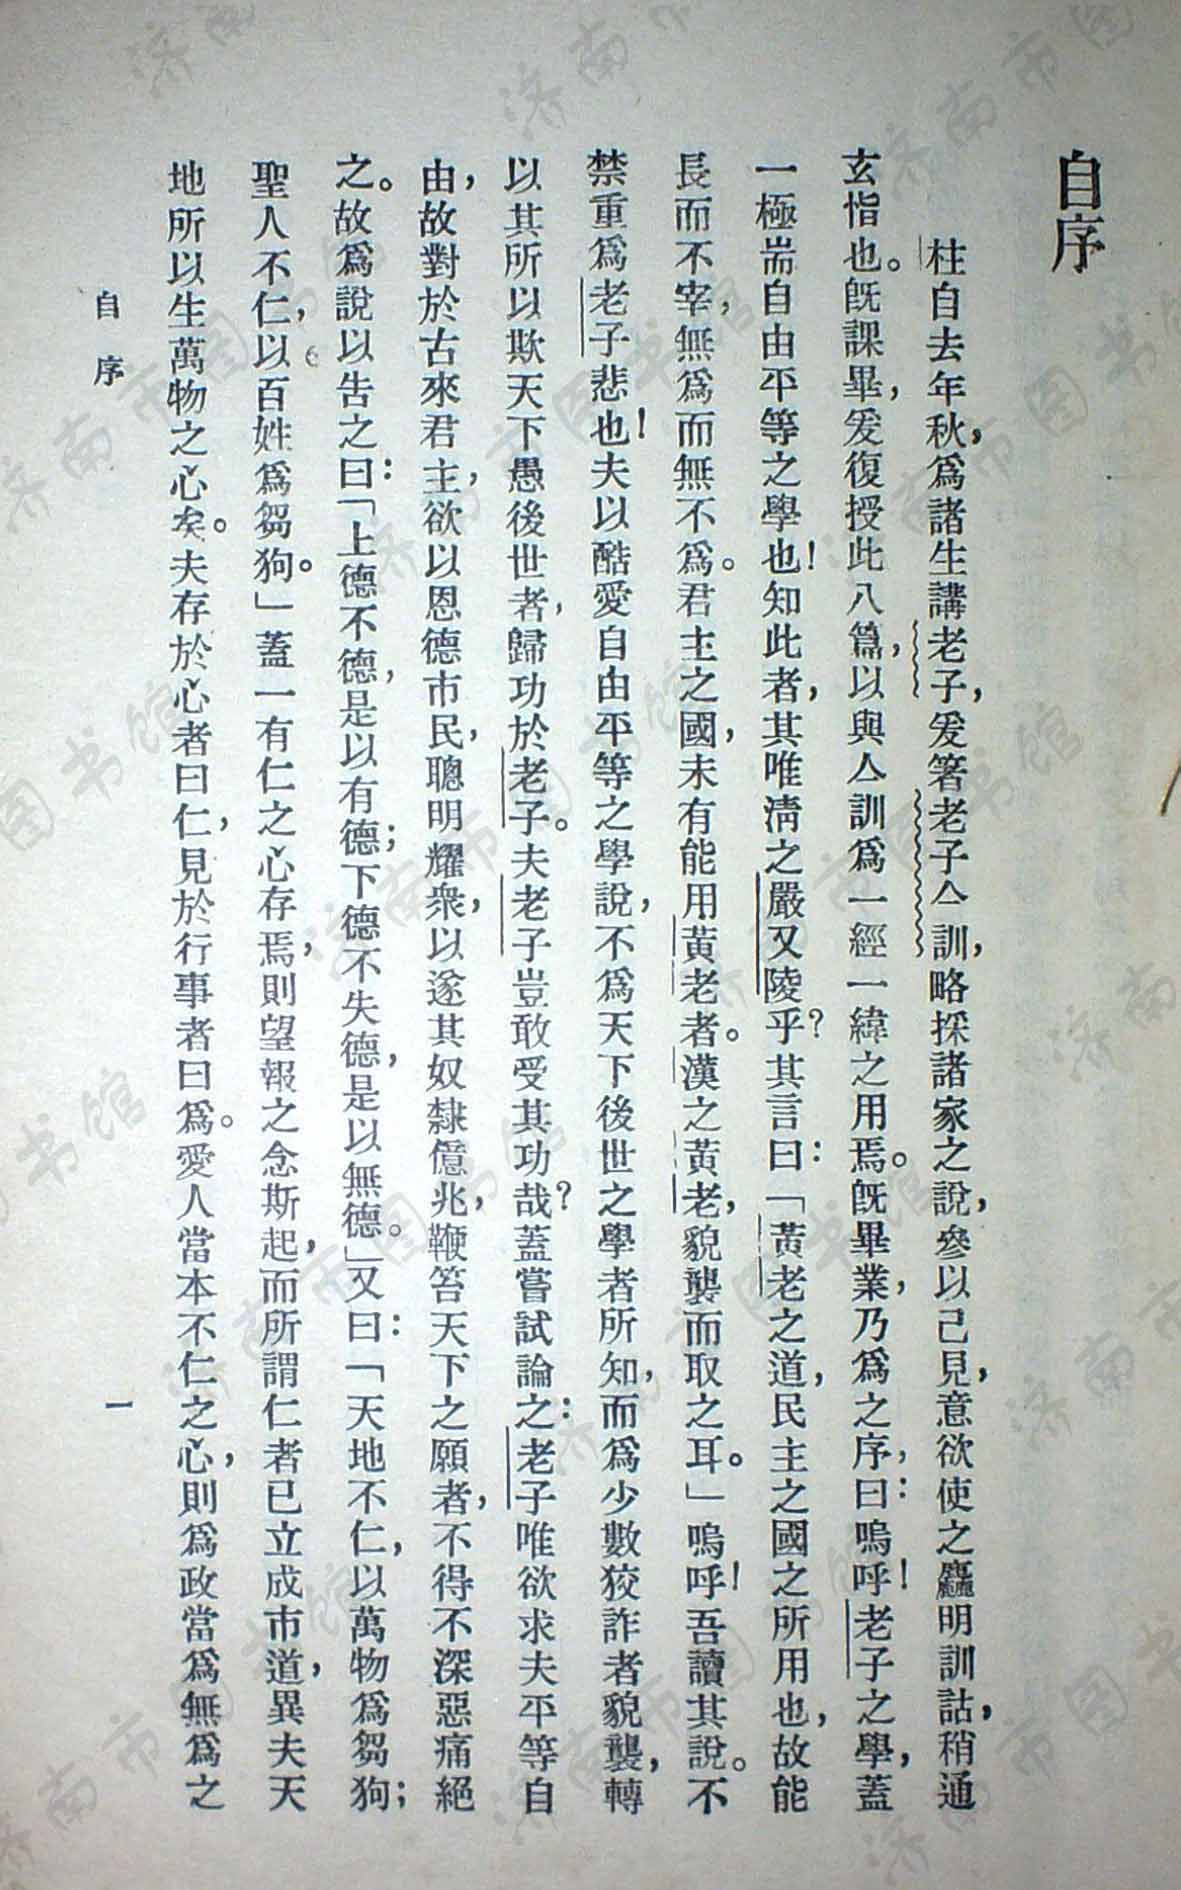 自序
柱自去年秋，爲諸生講老子，爰箸老子亼訓，略採諸家之說，參以己見，意欲使之麤明訓詁，稍通
玄恉也。旣課畢，爰復授此八篇，以與亼訓爲一經一緯之用焉。旣畢業，乃爲之序，曰：嗚呼！老子之學，蓋
一極耑自由平等之學也！知此者，其唯淸之嚴又陵乎？其言曰：「黃老之道，民主之國之所用也，故能
長而不宰，無爲而無不爲。君主之國，未有能用黃老者。漢之黃老，貌襲而取之耳。」嗚呼！吾讀其說。不
禁重爲老子悲也！夫以酷愛自由平等之學說，不爲天下後世之學者所知，而爲少數狡詐者貌襲，轉
以其所以欺天下愚後世者，歸功於老子。夫老子豈敢受其功哉？蓋嘗試論之：老子唯欲求夫平等自
由，故對於古來君主，欲以恩德市民，聰明耀衆，以遂其奴隸億兆，鞭笞天下之願者，不得不深惡痛絕
之。故爲說以吿之曰：「上德不德，是以有德；下德不失德，是以無德。」又曰：「天地不仁，以萬物爲芻狗；
聖人不仁，以百姓爲芻狗。」蓋一有仁之心存焉，則望報之念斯起，而所謂仁者已立成市道，異夫天
地所以生萬物之心矣。夫存於心者曰仁，見於行事者曰爲。愛人當本不仁之心，則爲政當爲無爲之
自序
一
济南市图书馆